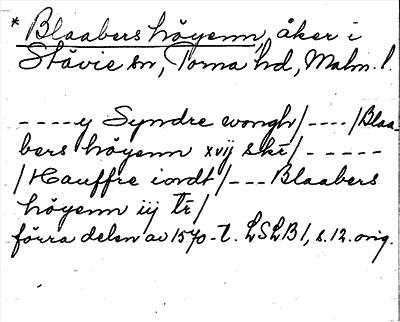 * Blaabers höyenn, åker i
Stävie sn, Torna hd, Malm. l.
----y Syndre wongh/----/Blaa-
bers höyenn xvij skr/-----
/Hauffre iordt/---Blaabers
höyenn iij tr/
förra delen av 1570-t. LSLB1, s. 12. orig.